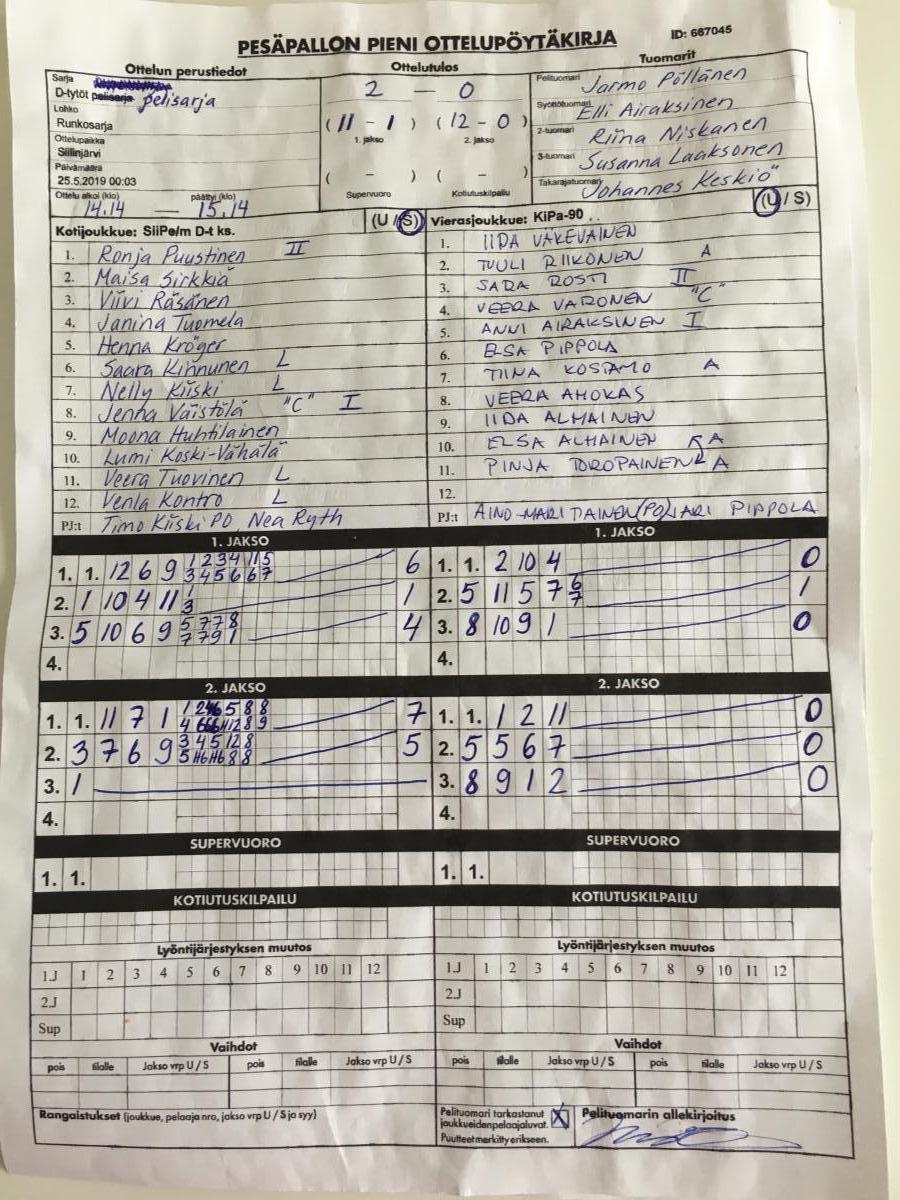 PESÄPALLON PIENI OTTELUPÖYTÄKIRJA
ID: 667045
Ottelun perustiedot
Sarja
D-tytöt pelisarja pelisarja
Lohko
Runkosarja
Ottelupaikka
Siilinjärvi
Päivämäärä
25.5.2019 00:03
Ottelu alkoi (klo) päättyi (klo)
14.14 — 15.14
Ottelutulos
2 — 0
( 11 - 1 ) ( 12 - 0 )
1. jakso 2. jakso
( - ) ( - )
Supervuoro Kotiutuskilpailu
Tuomarit
Pelituomari Jarmo Pöllänen
Syöttötuomari Elli Airaksinen
2-tuomari Riina Niskanen
3-tuomari Susanna Laaksonen
Takarajatuomari Johannes Keskiö
Kotijoukkue: SiiPe/m D-t ks. (U / S)
1. Ronja Puustinen II
2. Maisa Sirkkiä
3. Viivi Räsänen
4. Janina Tuomela
5. Henna Kröger
6. Saara Kinnunen L
7. Nelly Kiiski L
8. Jenna Väistölä "C" I
9. Moona Huhtilainen
10. Lumi Koski-Vähälä
11. Veera Tuovinen L
12. Venla Kontro L
PJ:t Timo Kiiski PO Nea Ryth
Vierasjoukkue: KiPa-90 (U / S)
1. IIDA VÄKEVÄINEN
2. TUULI RIIKONEN A
3. SARA ROSTI II
4. VEERA VARONEN "C"
5. ANNI AIRAKSINEN I
6. ELSA PIPPOLA
7. TIINA KOSTAMO A
8. VEERA AHOKAS
9. IIDA ALHAINEN
10. ELSA ALHAINEN A
11. PINJA TOROPAINEN A
12.
PJ:t AINO-MARI TAINEN (PO) JARI PIPPOLA
1. JAKSO
1. 1. 12 6 9 1 2 3 4 11 5 6
3 4 5 6 6 7
2. 1 10 4 11 1 1
3
3. 5 10 6 9 5 7 7 8 4
7 7 9 1
4.
1. JAKSO
1. 1. 2 10 4 0
2. 5 11 5 7 6 1
7
3. 8 10 9 1 0
4.
2. JAKSO
1. 1. 11 7 1 7
2. 3 7 6 9 3 4 5 12 8 5
3. 1
4.
2. JAKSO
1. 1. 1 2 11 0
2. 5 5 6 7 0
3. 8 9 1 2 0
4.
SUPERVUORO
1. 1.
SUPERVUORO
1. 1.
KOTIUTUSKILPAILU
KOTIUTUSKILPAILU
Lyöntijärjestyksen muutos
1.J 1 2 3 4 5 6 7 8 9 10 11 12
2.J
Sup
Lyöntijärjestyksen muutos
1.J 1 2 3 4 5 6 7 8 9 10 11 12
2.J
Sup
Vaihdot
pois tilalle Jakso vrp U / S pois tilalle Jakso vrp U / S
Vaihdot
pois tilalle Jakso vrp U / S pois tilalle Jakso vrp U / S
Rangaistukset (joukkue, pelaaja nro, jakso vrp U / S ja syy)
Pelituomari tarkastanut
joukkueiden pelaajaluvat. X
Puutteet merkitty erikseen.
Pelituomarin allekirjoitus